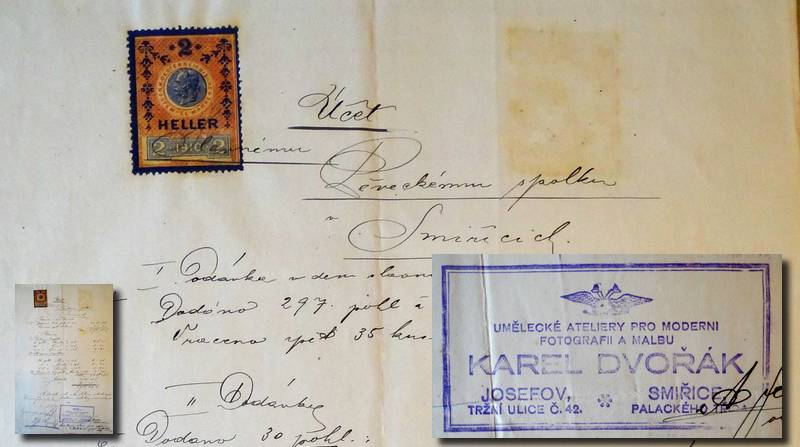 2
HELLER
2 1910 2
Účet
Slavnému
Pěveckému spolku
v
Smiřicích.
I Dodávka v den slavn
Dodáno 297. pohl á
Vraceno zpět 35 kus
II Dodávka
Dodáno 30 pohl.
UMĚLECKÉ ATELIERY PRO MODERNI
FOTOGRAFII A MALBU
KAREL DVOŘÁK
JOSEFOV, SMIŘICE
TRŽNÍ ULICE Č. 42. PALACKÉHO TŘ.